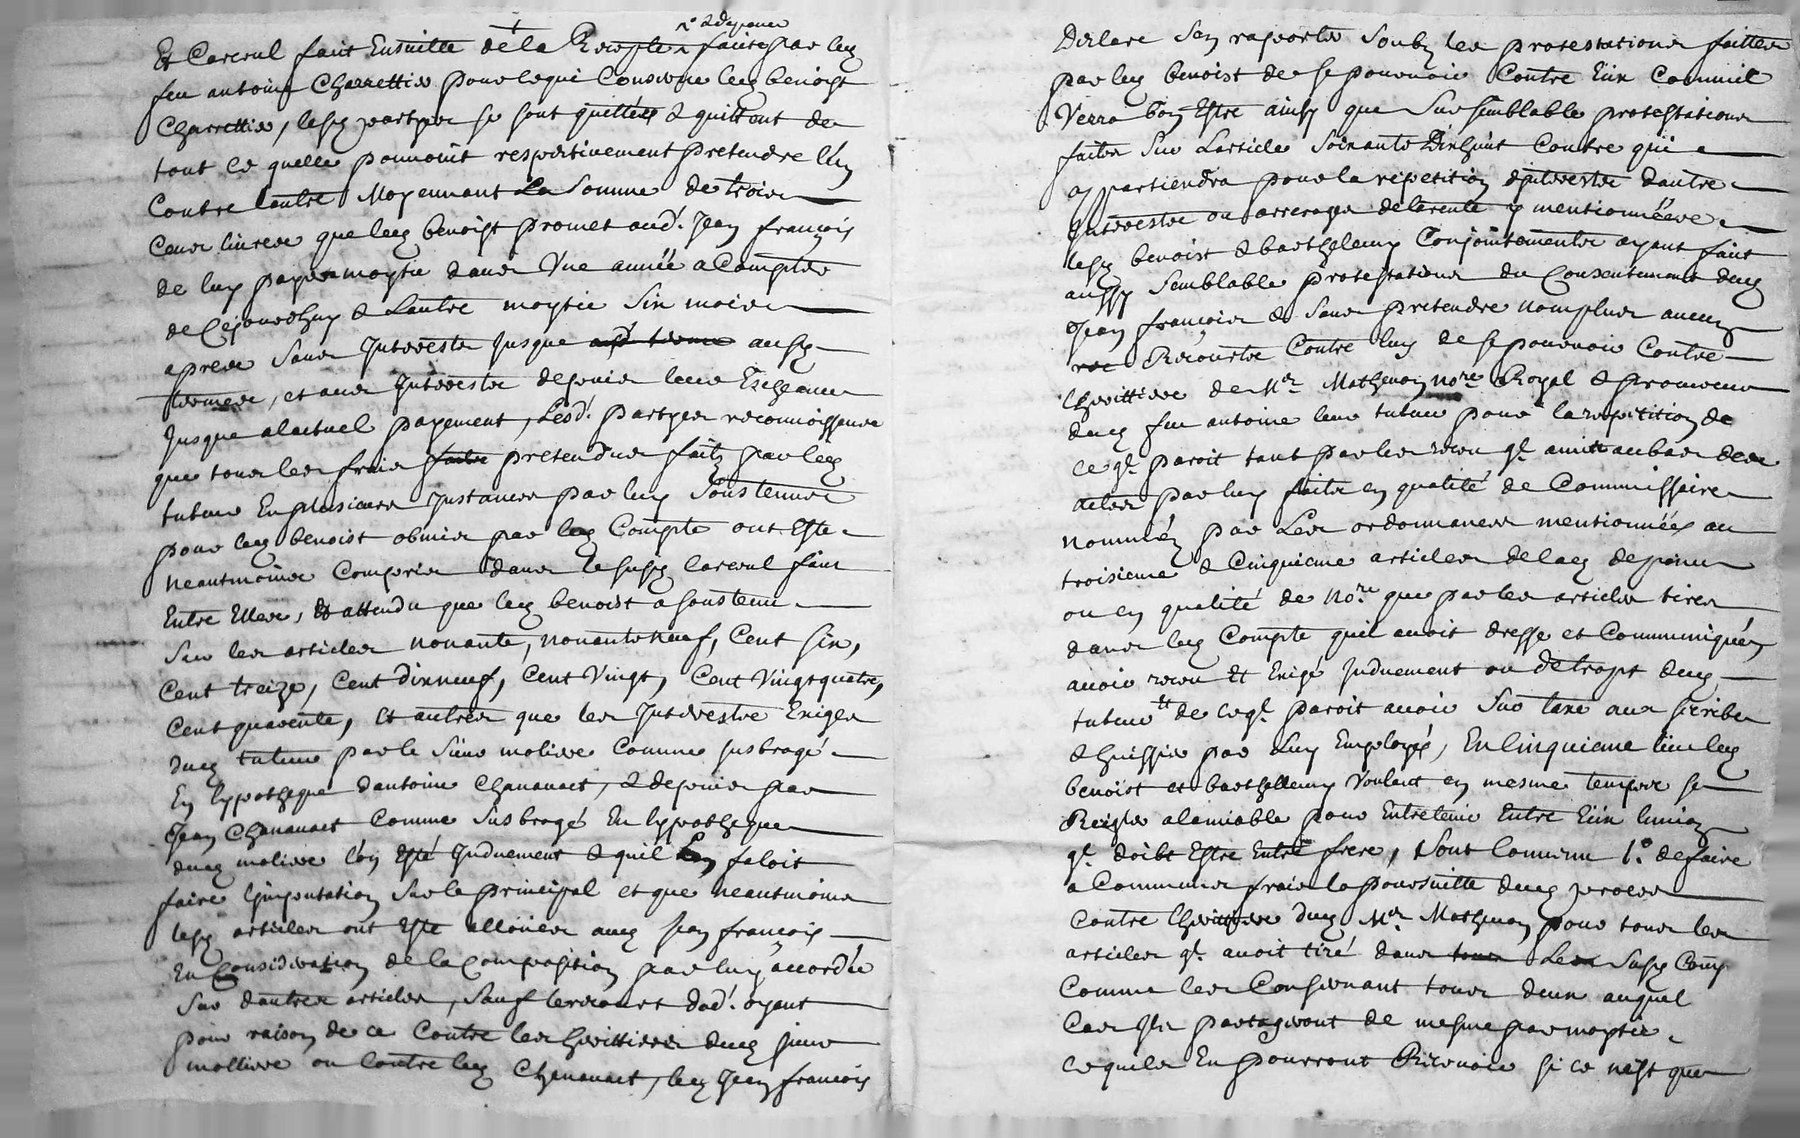 & depance
Et Carcul fait Ensuitte de la Recepte faitte par led
feu antoine Charrettier pour ce qui Conserne led benoist
Charrettier, lesd partyes se sont quittées & quittent de
tout ce quelles pouvoint respectivement pretendre lun
Contre lautre Moyennant La Somme de trois
Cens livres que led benoist promet aud. Jean françois
de luy payer moytie dans Une année a Compter
de Cejourdhuy & Lautre moytie Six mois
apres Sans Interests Jusque aud terme ausd
termes, et aux Interests depuis leur Escheance
Jusque alactuel payement, Lesd. partyes reconnoissent
que tous les frais faits pretendus faits par led
tuteur En plusieurs Instances par luy Soustenues
pour led benoist obmis par led Compte ont Este
neantmoins Compris dans le susd Carcul fait
Entre Elles, Et attendu que led benoist a soustenu
Sur les articles nonante, nonante neuf, Cent six,
Cent treize, Cent dixneuf, Cent Vingt, Cent Vingt quatre,
Cent quarente, et autres que les Interestz Exigés
dud tuteur par le Sieur moliere Comme susbrogé
En lypotheque dantoine Chananact, & depuis par
Jean Chananact Comme Susbrogé En lypotheque
dud moliere lon Esté Induement & quil En faloit
faire Limputation Sur le principal et que neantmoins
lesd articles ont Esté alloüés aud Jean françois
En Consideration de la Composition par luy accordée
Sur dautres articles, Sauf le recours dud. oyant
pour raison de ce Contre les heritiers dud sieur
molliere ou Contre led Chananact, led Jean françois
Declare Sen raporter Soubz les protestations faittes
par led benoist de se pourvoir Contre Eux Comme il
Verra bon Estre ainsy que Sur semblables protestations
faites Sur Larticle Soixante Dixhuit Contre qui
appartiendra pour la repetition dinterests dautre
Interests ou arrerages de la rente y mentionnée
lesd benoist & barthelemy Conjointement ayant fait
aussy Semblable protestations du Consentement dud
Jean françois & Sans pretendre nomplus aucun
rec Recourse Contre luy de se pourvoir Contre
Lheritiere de Mr. Mathevon nore Royal & procureur
dud feu antoine leur tuteur pour la repetition de
ce ql. paroit tant par les receu ql. a mis au bas des
actes par luy faits en qualité de Commissaire
nommé par Les ordonnances mentionnées au
troisieme & Cinquieme articles de lad depance
ou en qualité de nore. que par les articles tirés
dans led Compte quil avoit dressé et Communiqué,
avoir receu Et Exigé Induement ou de trop dud
tuteur Et de ce ql. paroit avoir Sur taxé aux scribe
& huissier par Luy Employés, En Cinquieme lieu led
benoist et barthellemy Voulant en mesme temps se
Regler alamiable pour Entretenir Entre Eux lunion
ql. doibt Estre Entre frere, Sont Convenu 1.o de faire
a Communs frais la poursuitte dud proces
Contre Lheritiere dud Mr. Mathevon pour tous les
articles ql. avoit tiré dans tous Les Susd Comp
Comme les Conservant tous deux auquel
Cas Ils partageront de mesme par moytié
ce quils En pourront Recevoir si ce nest que